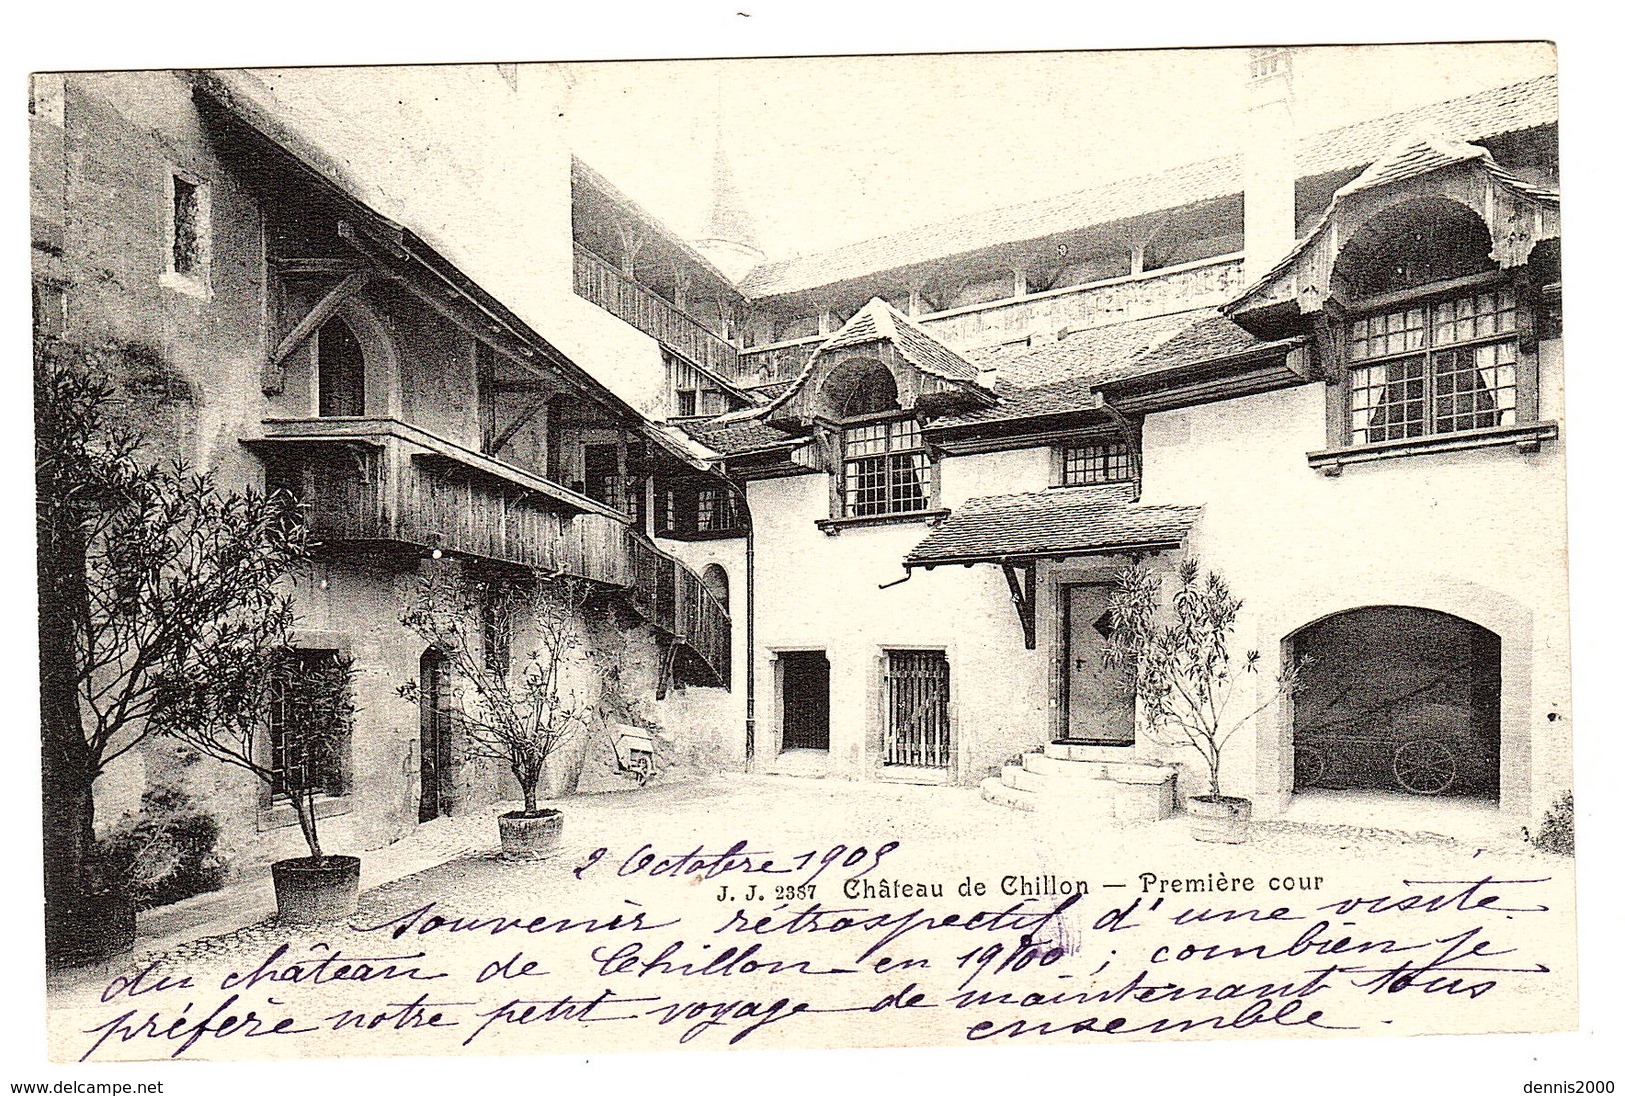 2 Octobre 1905
J. J. 2387 Château de Chillon — Première cour
Souvenir rétrospectif d'une visite
du château de Chillon en 1900 ; combien je
préfère notre petit voyage de maintenant tous
ensemble.
www.delcampe.net
dennis2000